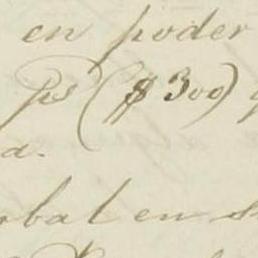 en poder
ps ($300)
a.
rbal en s